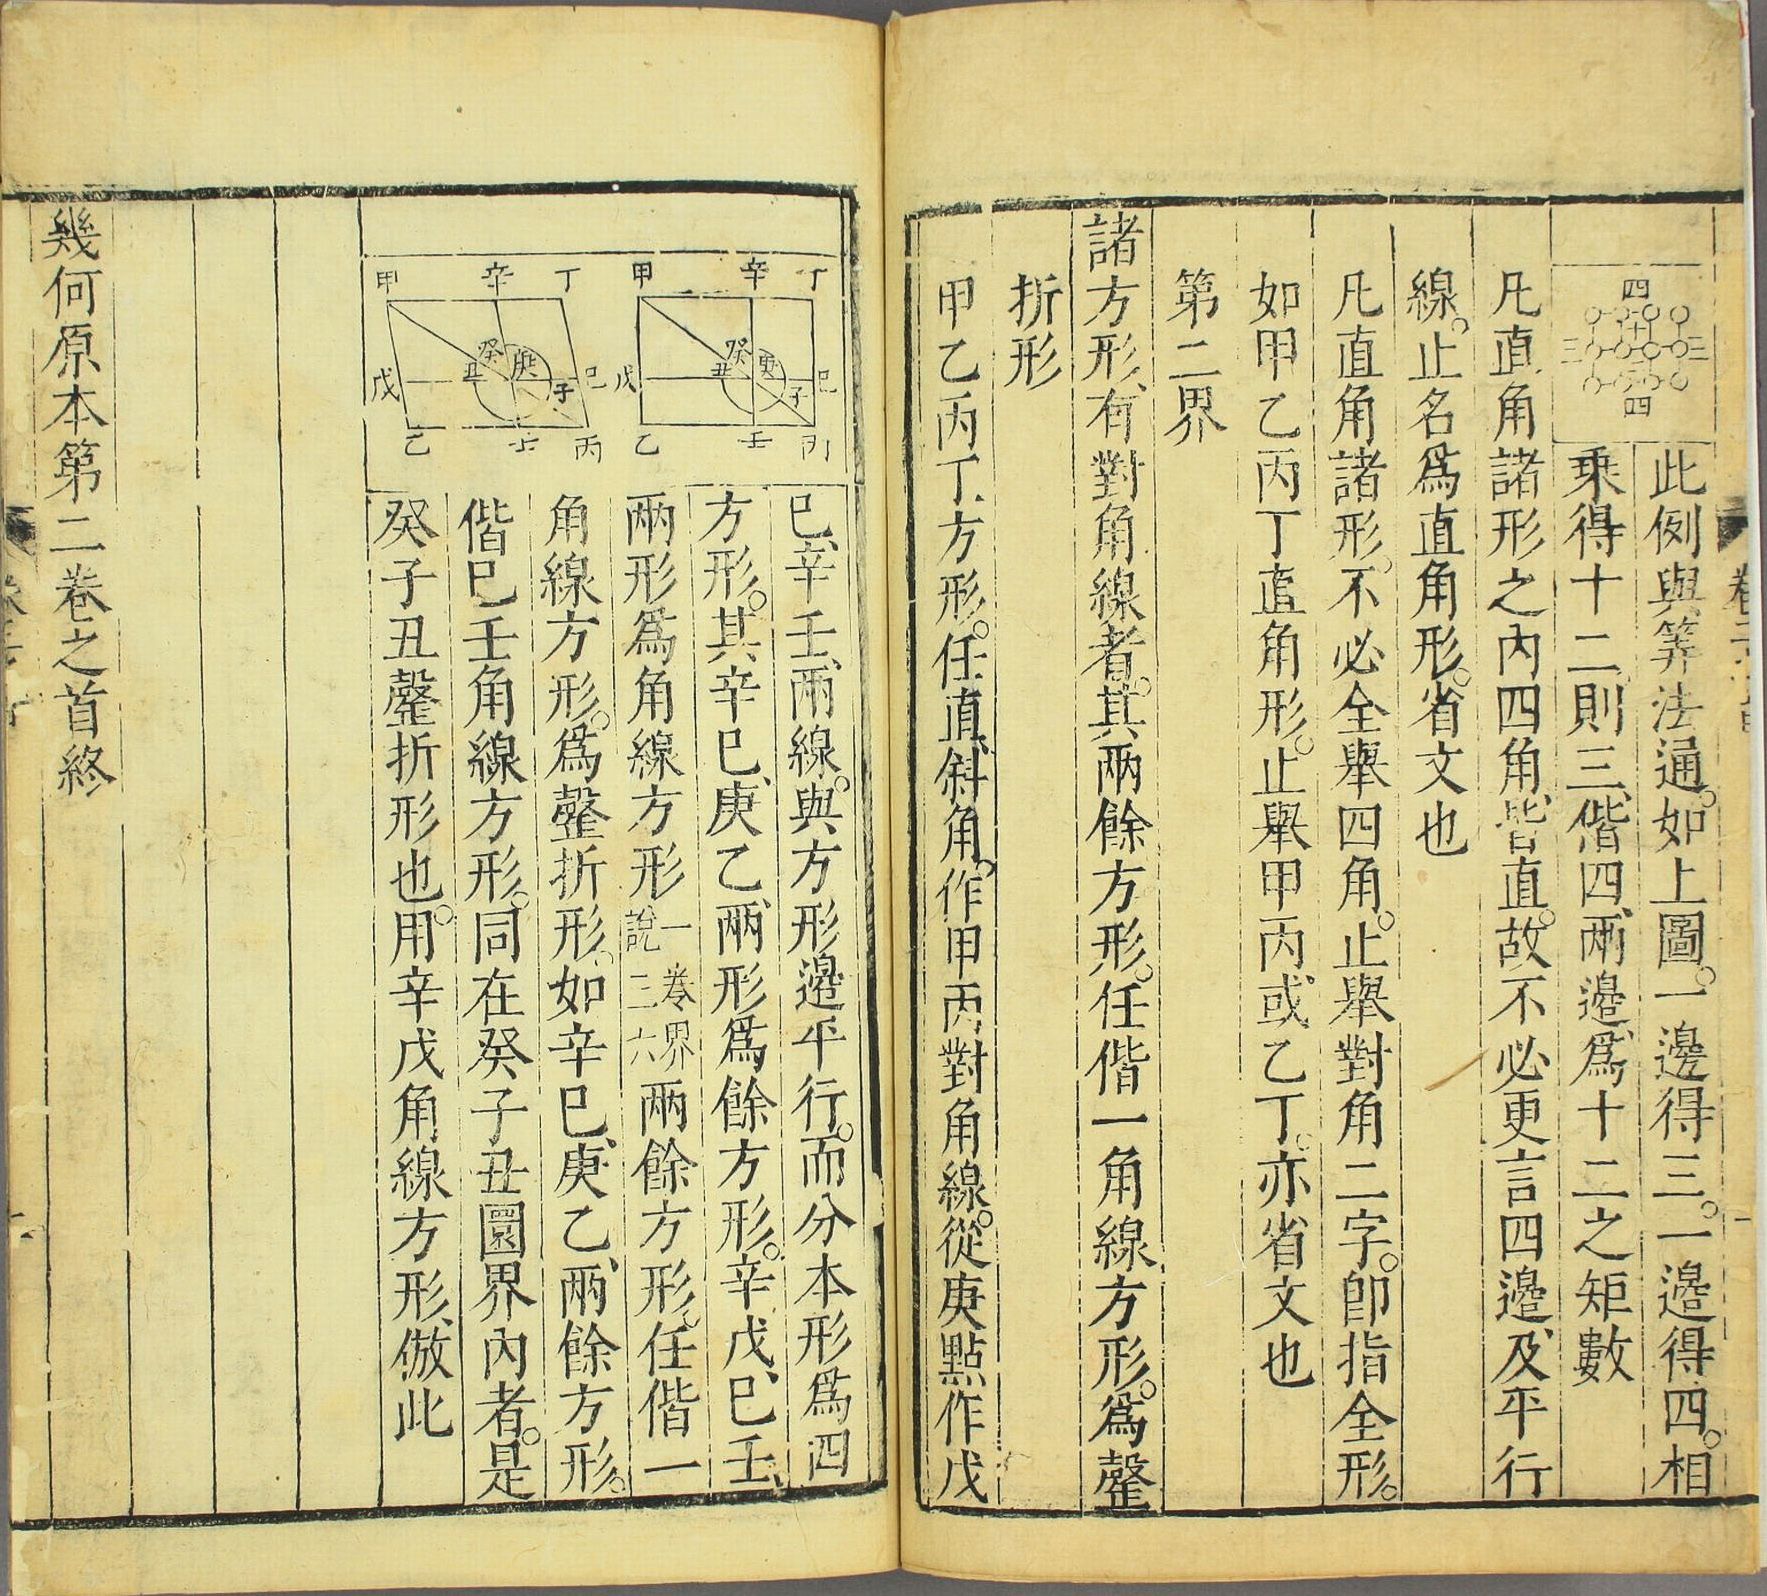 四
三
十
三
四
此例與筭法通。如上圖。一邊得三。一邊得四。相
乗得十二則三偕四、兩邊、爲十二之矩數
凡直角諸形之內四角、皆直。故不必更言四邊、及平行
線。止名爲直角形。省文也
凡直角諸形。不必全舉四角。止舉對角二字。卽指全形。
如甲乙丙丁直角形。止舉甲丙、或乙丁。亦省文也
第二界
諸方形、有對角線者。其兩餘方形。任偕一角線方形。爲罄
折形
甲乙丙丁方形。任直、斜角。作甲丙對角線。從庚點作戊
丁
辛
甲
癸
庚
丑
子
己
戊
丙
壬
乙
丁
辛
甲
癸
庚
丑
子
己
戊
丙
壬
乙
己、辛壬、兩線。與方形邊平行。而分本形爲四
方形。其辛己、庚乙、兩形爲餘方形。辛戊、己壬、
兩形爲角線方形一卷界說三六兩餘方形、任偕一
角線方形。爲罄折形。如辛己、庚乙、兩餘方形。
偕己壬角線方形。同在癸子丑圜界內者。是
癸子丑罄折形也。用辛戊角線方形、倣此
幾何原本第二卷之首終